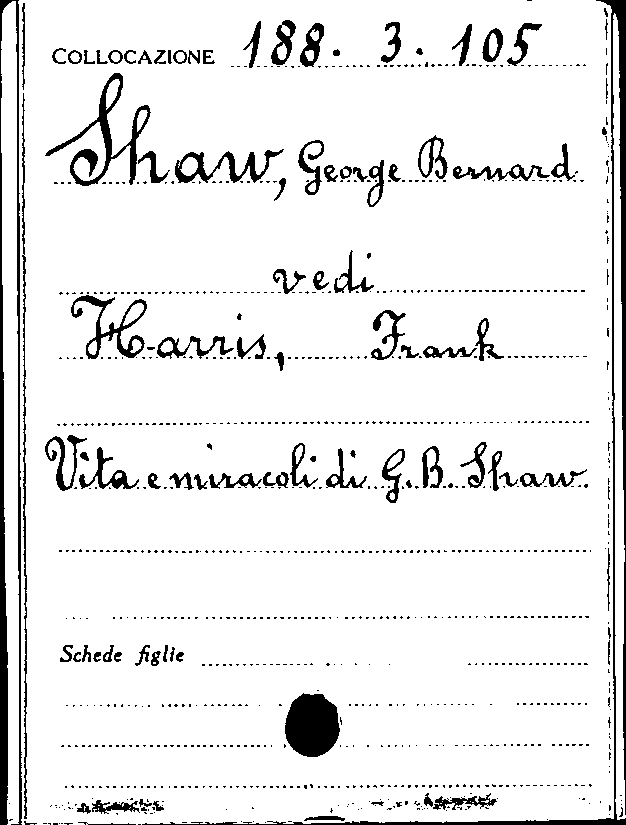 COLLOCAZIONE 188. 3. 105
Shaw, George Bernard
vedi
Harris, Frank
Vita e miracoli di G. B. Shaw.
Schede figlie